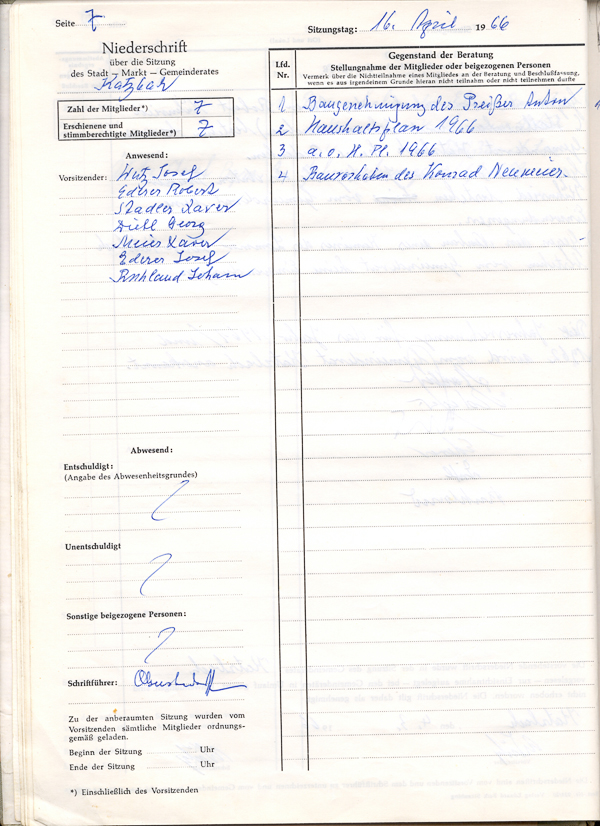 Seite 7
Sitzungstag: 16. April 1966
Niederschrift
über die Sitzung
des Stadt – Markt – Gemeinderates
Katzbach
Zahl der Mitglieder*) 7
Erschienene und
stimmberechtigte Mitglieder*) 7
Anwesend:
Vorsitzender: Wutz Josef
Ederer Robert
Stadler Xaver
Dietl Georg
Meier Xaver
Ederer Josef
Ruhland Johann
Abwesend:
Entschuldigt:
(Angabe des Abwesenheitsgrundes)
Unentschuldigt
Sonstige beigezogene Personen:
Schriftführer:
Zu der anberaumten Sitzung wurden vom
Vorsitzenden sämtliche Mitglieder ordnungs-
gemäß geladen.
Beginn der Sitzung Uhr
Ende der Sitzung Uhr
*) Einschließlich des Vorsitzenden
Lfd.
Nr.
Gegenstand der Beratung
Stellungnahme der Mitglieder oder beigezogenen Personen
Vermerk über die Nichtteilnahme eines Mitgliedes an der Beratung und Beschlußfassung,
wenn es aus irgendeinem Grunde hieran nicht teilnahm oder nicht teilnehmen durfte
1 Baugenehmigung des Preißer Anton
2 Haushaltsplan 1966
3 a.o. H. Pl. 1966
4 Bauvorhaben des Konrad Neumeier